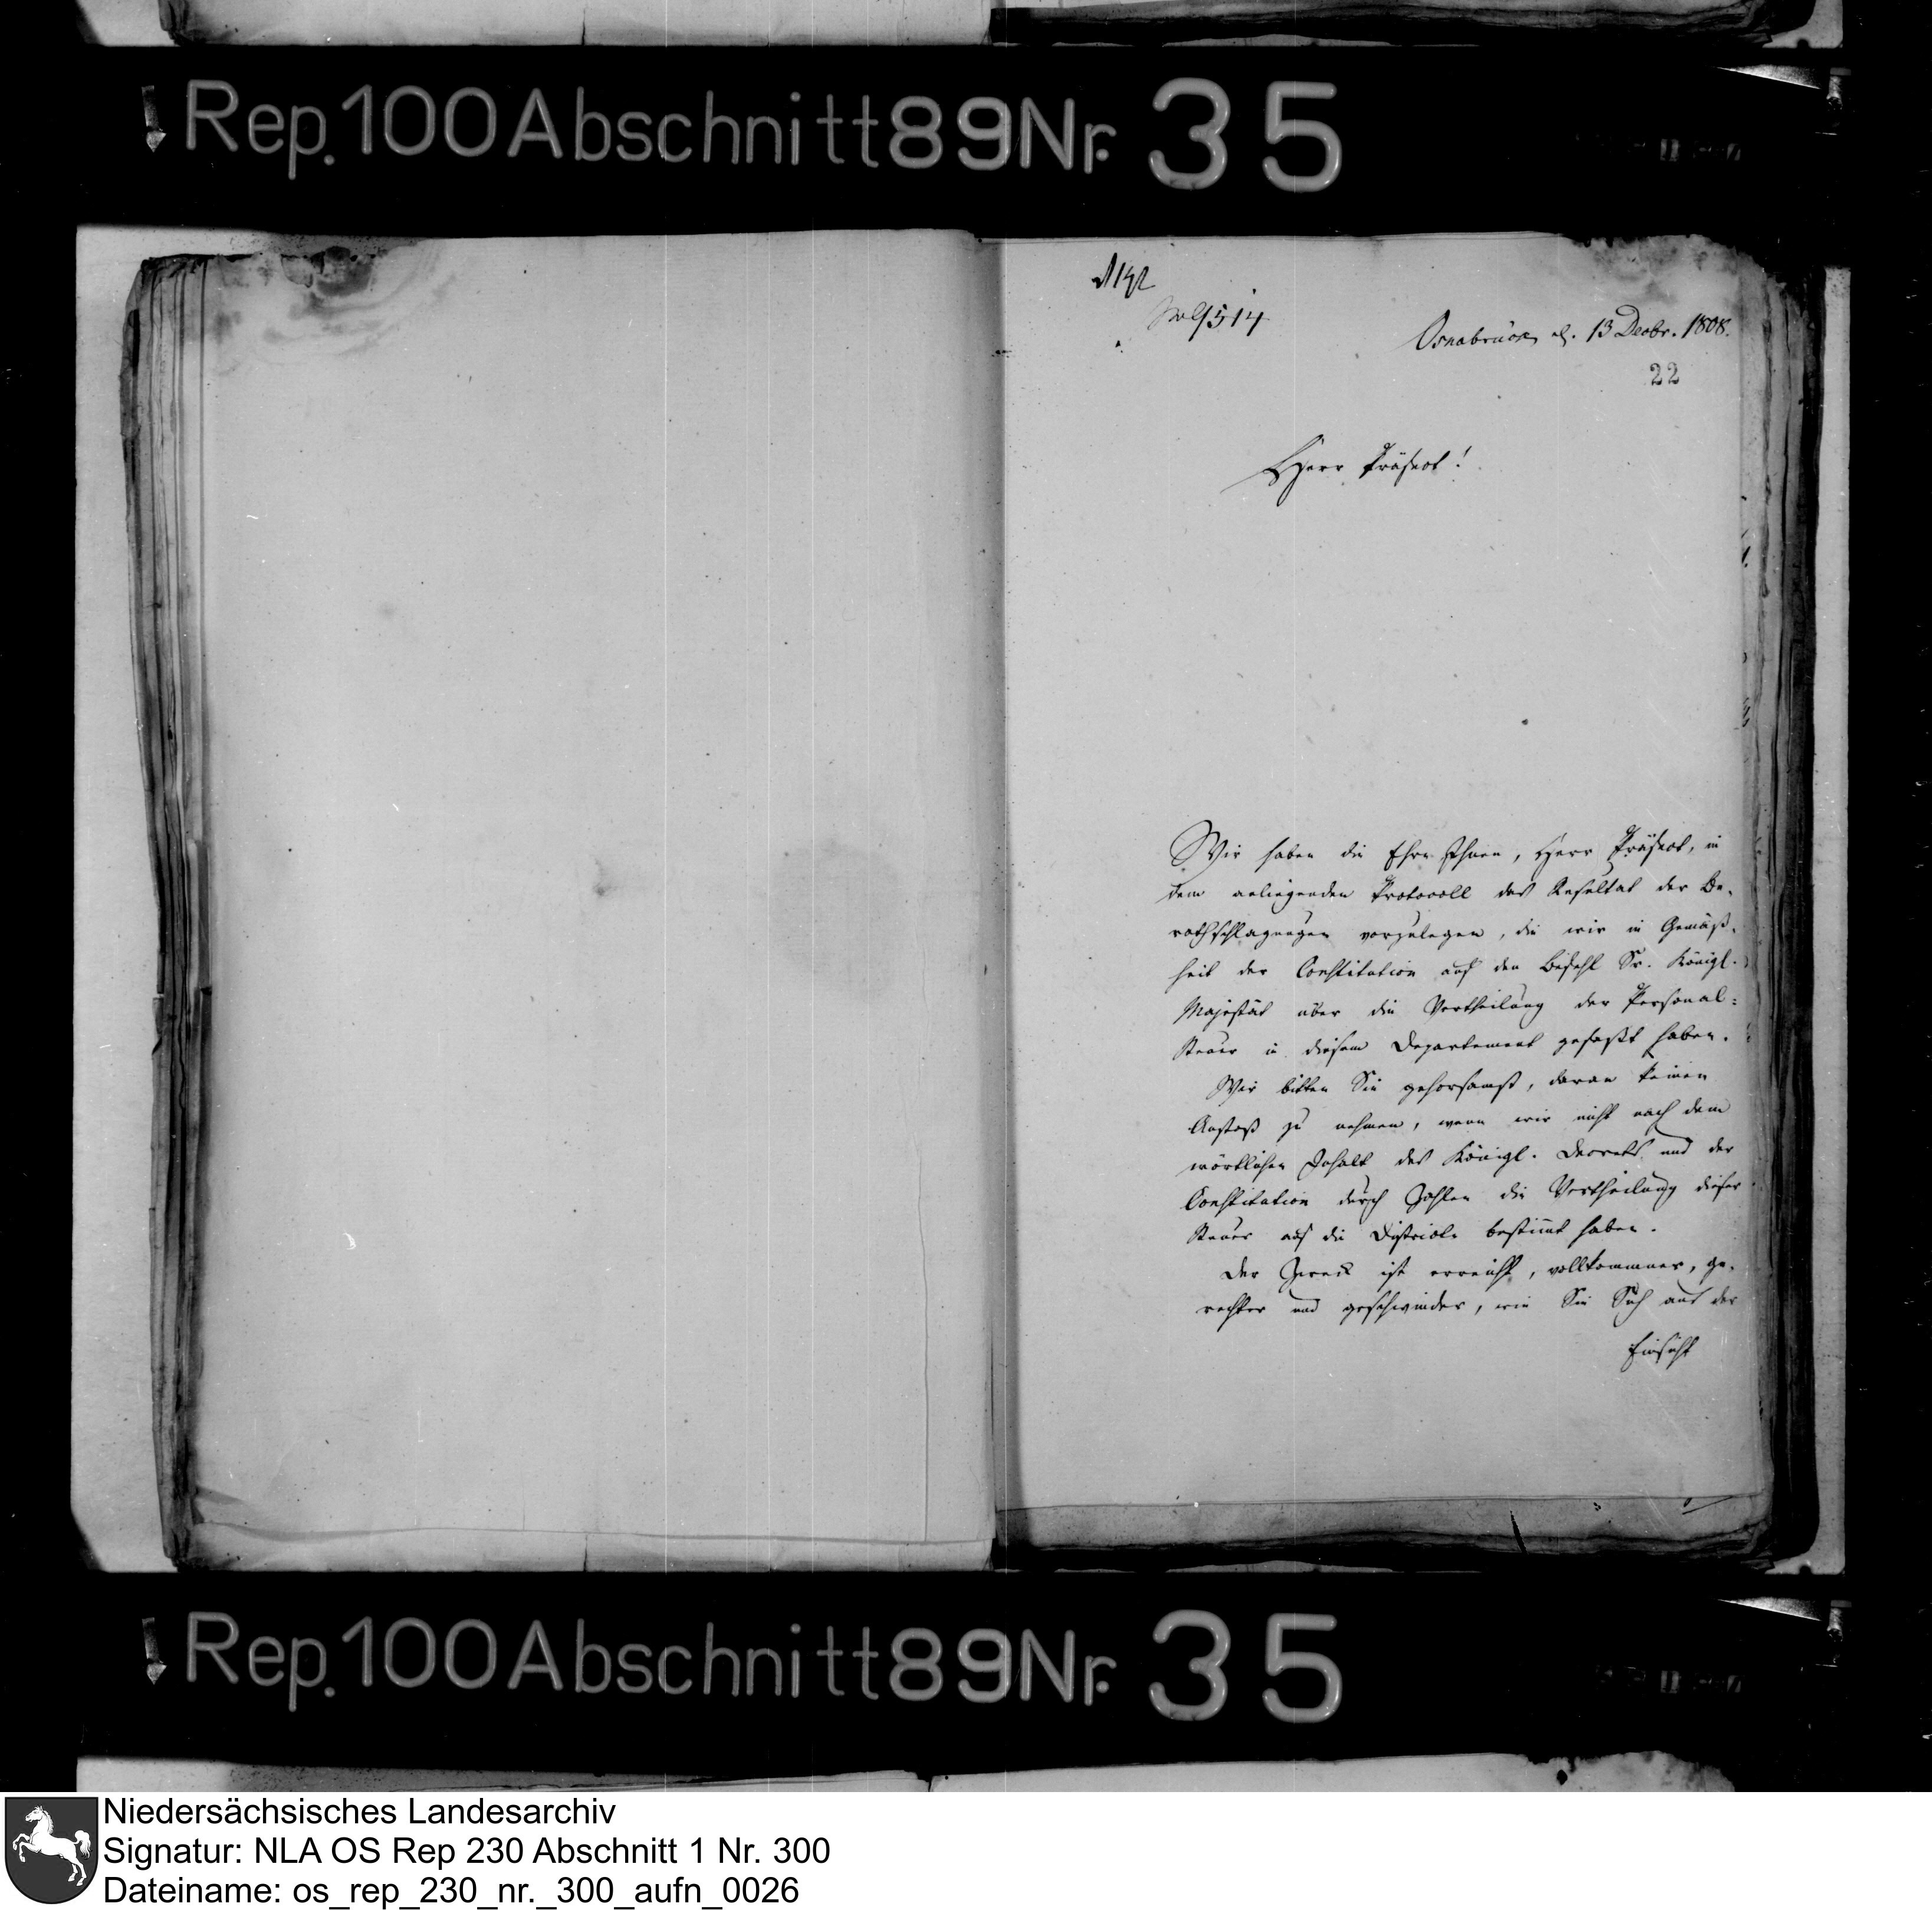 Rep. 100 Abschnitt 89 Nr. 35
Osnabrück d. 13 Decbr. 1808.
22
Herr Präfect!
Wir haben die Ehre Ihnen, Herr Präfect, in
dem anliegenden Protocoll das Resultat der Be-
rathschlagungen vorzulegen, die wir in Gemäß-
heit der Constitution auf den Befehl Sr. Königl.
Majestät über die Vertheilung der Personal-
Steuer in diesem Departement gefaßt haben.
Wir bitten Sie gehorsamst, daran keinen
Anstoß zu nehmen, wenn wir nicht nach dem
wörtlichen Inhalt des Königl. Decrets und der
Constitution durch Zahlen die Vertheilung dieser
Steuer auf die Districte bestimt haben.
Der Zweck ist erreicht, vollkommner, ge-
rechter und geschwinder, wie Sie Sich aus der
Einsicht
Rep. 100 Abschnitt 89 Nr. 35
Niedersächsisches Landesarchiv
Signatur: NLA OS Rep 230 Abschnitt 1 Nr. 300
Dateiname: os_rep_230_nr._300_aufn_0026